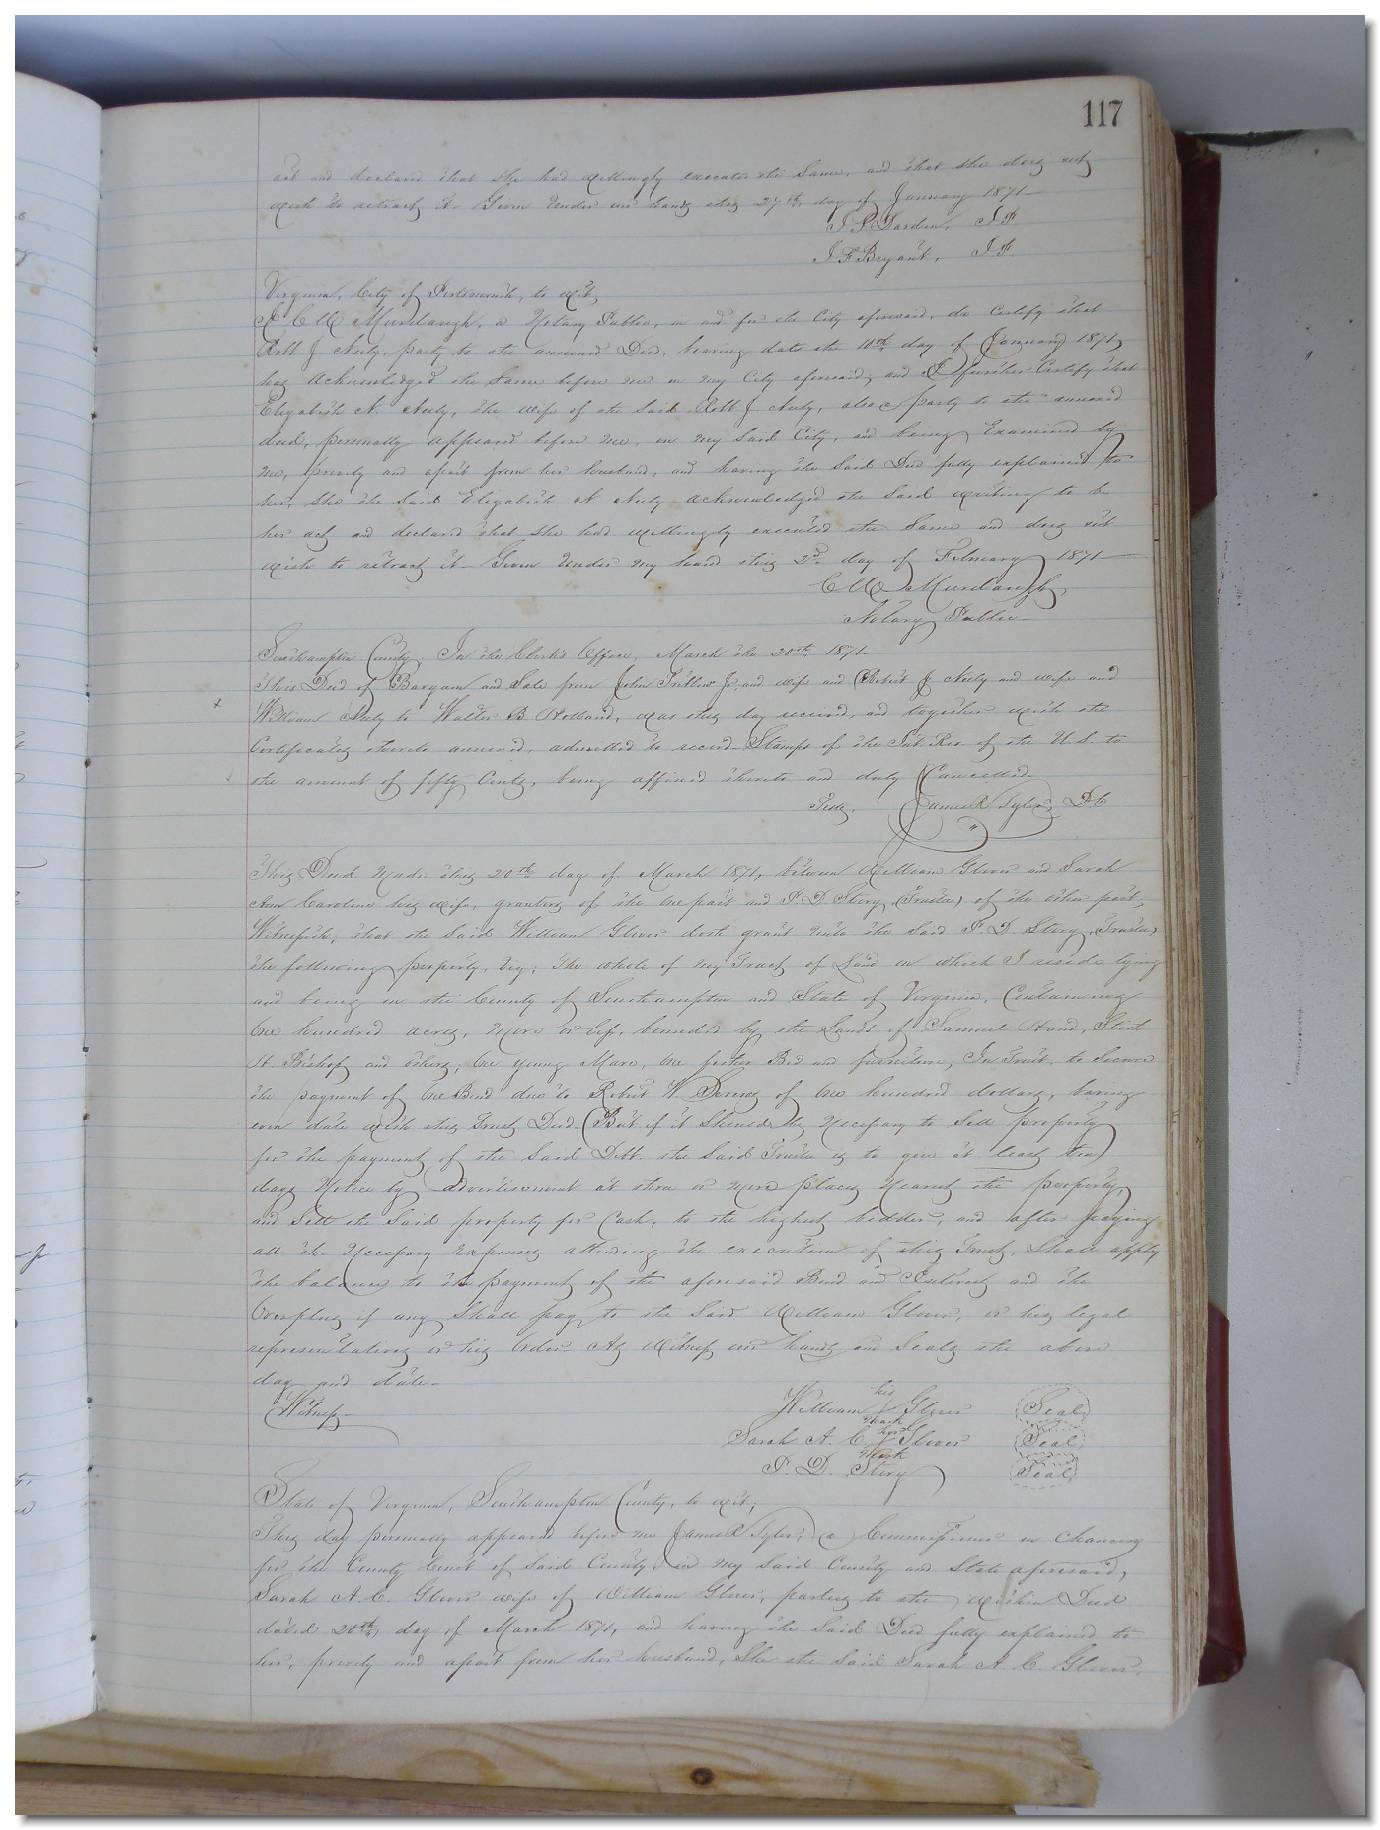 117
act and declared that she had willingly executed the Same, and that she does not
wish to retract it. Given Under our hands this 27th day of January 1871
J P Darden, J P
J F Bryant, J P.
Virginia, City of Portsmouth, to wit,
I C W Murdaugh, a Notary Public, in and for the City aforesaid, do Certify that
Robt J Neely, party to the annexed Deed, bearing date the 10th day of January 1871,
has acknowledged the Same before me in my City aforesaid, and I further Certify that
Elizabeth N. Neely, the wife of the Said Robt J Neely, also party to the annexed
deed, personally appeared before me, in my Said City, and being Examined by
me, privily and apart from her husband, and having the Said Deed fully explained to
her, She the Said Elizabeth N Neely acknowledged the Said writing to be
her act and declared that she had willingly executed the Same and does not
wish to retract it. Given Under my hand this 2d day of February 1871
C W Murdaugh,
Notary Public
Southampton County. In the Clerk's Office, March the 20th 1871
This Deed of Bargain and Sale from John Pretlow Jr. and wife and Robert J Neely and wife and
William Neely to Walter B Holland, was this day received, and together with the
Certificates thereto annexed, admitted to record. Stamps of the Int Rev of the U.S. to
the amount of fifty Cents, being affixed thereto and duly Cancelled
Teste, James R Tyler, D.C
This Deed Made this 20th day of March 1871, between William Glover and Sarah
Ann Caroline his wife, grantors of the One part and P. D. Story, (Trustee) of the other part,
Witnesseth, that the Said William Glover doth grant Unto the Said P. D. Story, (Trustee)
the following property, Viz; The whole of my Tract of Land on which I reside lying
and being in the County of Southampton and State of Virginia, Containing
One hundred acres, more or less, bounded by the Lands of Samuel
H. Bishop and others, One young Mare, One feather Bed and furniture, In Trust, to Secure
the payment of One Bond due to Robert W. of One hundred dollars, bearing
even date with this Trust Deed. (But if it Should be Necessary to Sell property
for the payment of the Said Debt. the Said Trustee is to give at least ten)
days Notice by advertisement at three or more places Nearest the property,
and Sell the Said property for Cash, to the highest bidder, and after paying
all the Necessary Expenses attending the execution of this Trust, Shall apply
the balance to the payment of the aforesaid Bond and Interest and the
Overplus if any Shall pay, to the Said William Glover, or his legal
representatives or his Order. As Witness our hands and Seals the above
day and date.
Witness
William his mark Glover Seal
Sarah A. C. her mark Glover Seal
P. D. Story Seal
State of Virginia, Southampton County, to wit;
This day personally appeared before me James R Tyler, a Commissioner in Chancery
for the County Court of Said County, in my Said County and State aforesaid,
Sarah A. C. Glover wife of William Glover, parties to the within Deed
dated 20th, day of March 1871, and having the Said Deed fully explained to
her, privily and apart from her husband, She the Said Sarah A C. Glover,